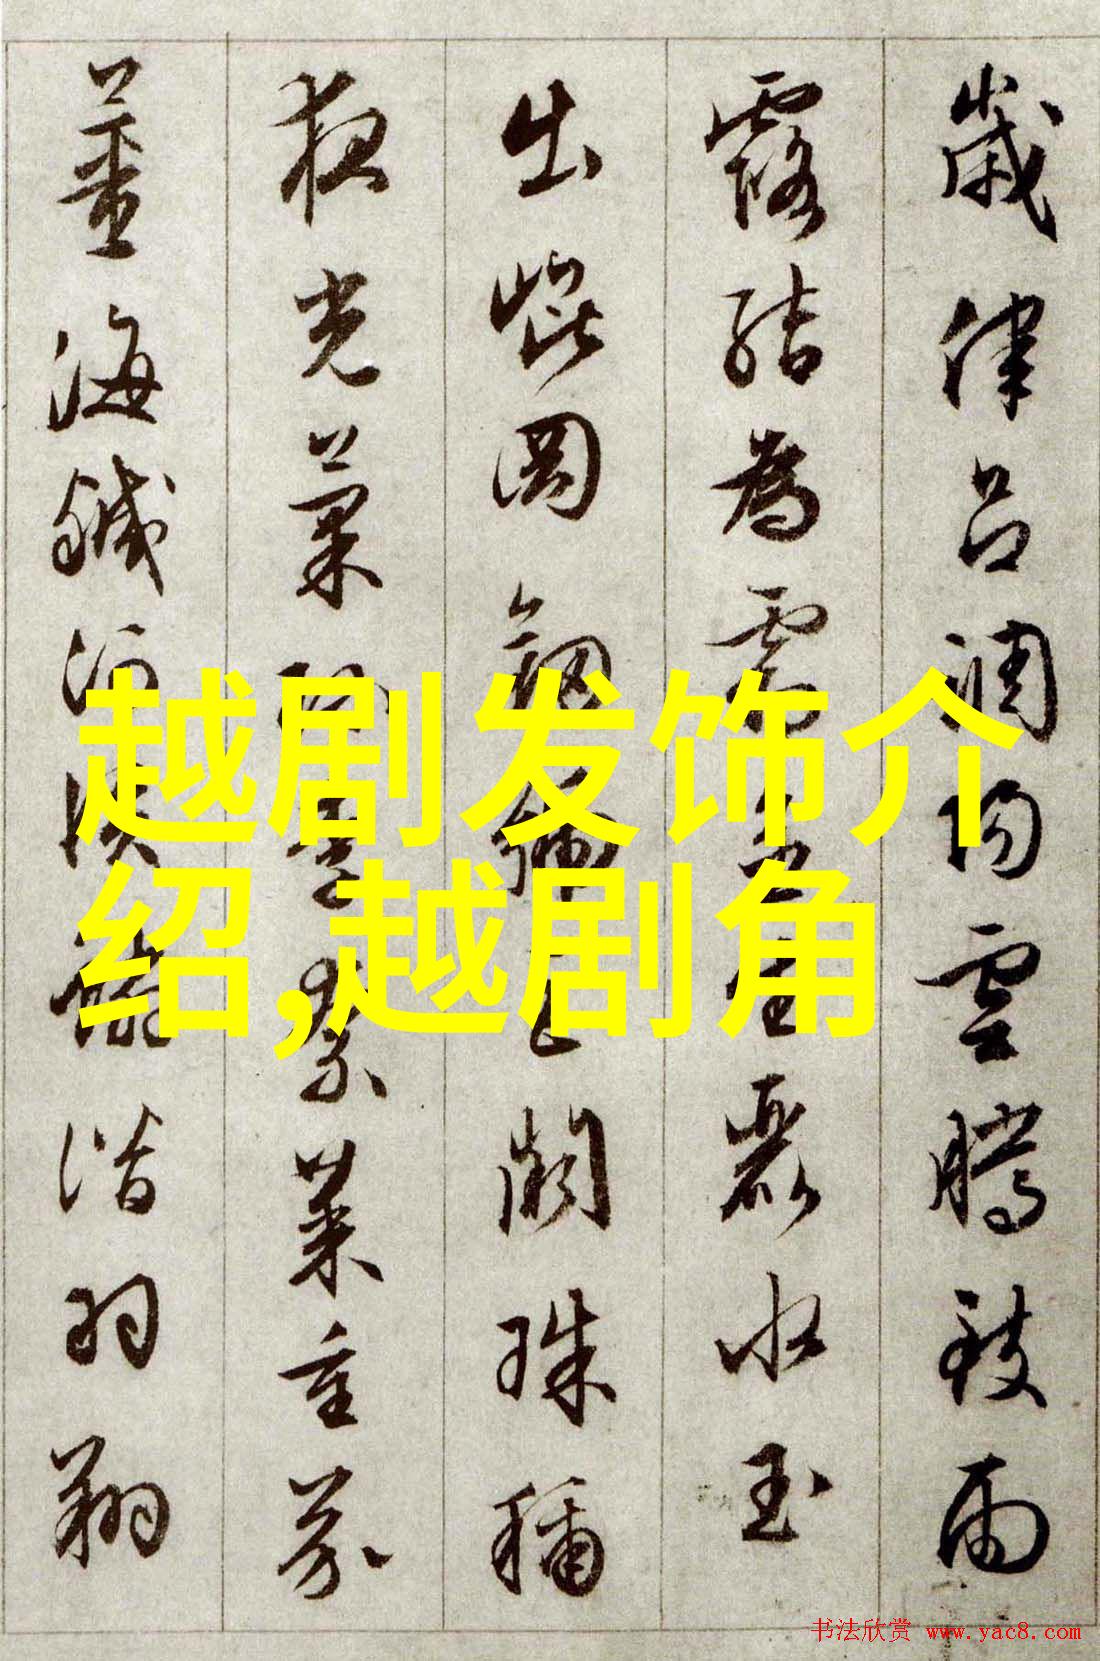 歲律呂調陽雲騰致雨
露結為霜金生麗水玉
出崐岡劍號巨闕珠稱
夜光菓珍李柰菜重芥
薑海鹹河淡鱗潛羽翔
越剧发饰介
绍,越剧角
书法欣赏 www.yac8.com